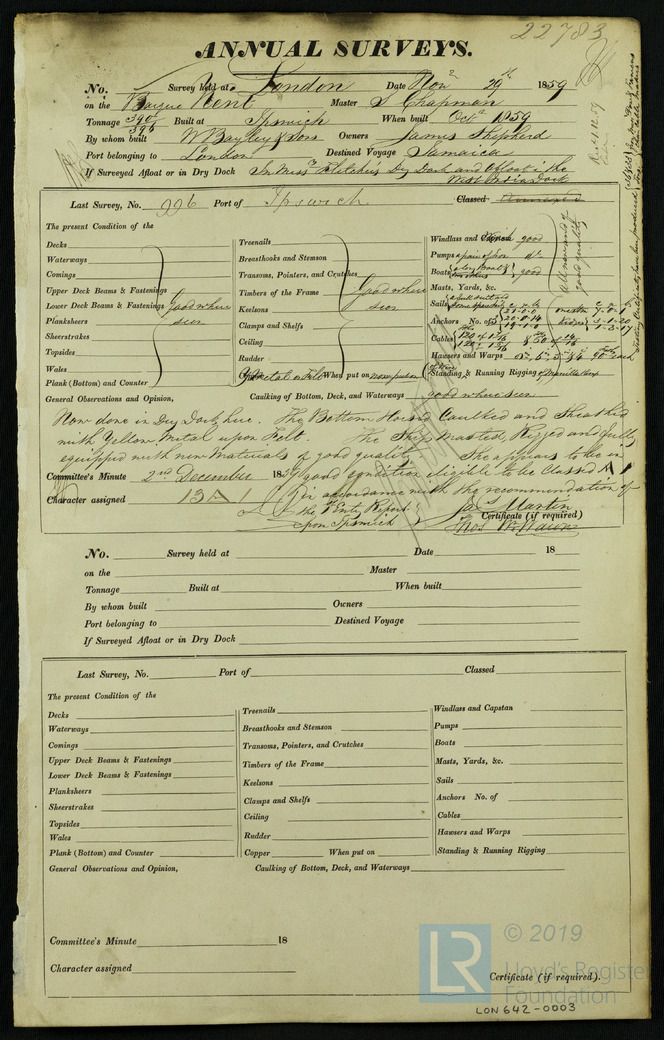 22783
ANNUAL SURVEYS.
No. Survey held at London Date Novr 29th 1859
on the Barque Kent Master S Chapman
Tonnage 390 / 396 Built at Ipswich When built Octr 1859
By whom built W Bayley & Sons Owners James Shepherd
Port belonging to London Destined Voyage Jamaica
If Surveyed Afloat or in Dry Dock In Messrs Fletcher's Dry Dock and Afloat in the
West India Dock
Last Survey, No. 996 Port of Ipswich Classed
The present Condition of the
Decks
Waterways
Comings
Upper Deck Beams & Fastenings
Lower Deck Beams & Fastenings
Planksheers
Sheerstrakes
Topsides
Wales
Plank (Bottom) and Counter
good where
seen
Treenails
Breasthooks and Stemson
Transoms, Pointers, and Crutches
Timbers of the Frame
Keelsons
Clamps and Shelfs
Ceiling
Rudder
good where
seen
Metal on Felt When put on now put on
Windlass and good
Pumps a pair of Iron do
Boats good
Masts, Yards, &c.
Sails
Anchors No. of
Cables
Hawsers and Warps
Standing & Running Rigging
General Observations and Opinion, Caulking of Bottom, Deck, and Waterways good where seen
Now done in Dry Dock here. The Bottom Horsed Caulked and Sheathed
with Yellow Metal upon Felt. The Ship Masted, Rigged and fully
equipped with new Materials of good quality She appears to be in
Committee's Minute 2nd December 1859 good condition eligible to be Classed A 1
Character assigned 13 A 1 in accordance with the recommendation of
the Entry Report
upon Ipswich
Jas Martin
Certificate (if required)
Thos W Wawn
No. Survey held at Date 18
on the Master
Tonnage Built at When built
By whom built Owners
Port belonging to Destined Voyage
If Surveyed Afloat or in Dry Dock
Last Survey, No. Port of Classed
The present Condition of the
Decks
Waterways
Comings
Upper Deck Beams & Fastenings
Lower Deck Beams & Fastenings
Planksheers
Sheerstrakes
Topsides
Wales
Plank (Bottom) and Counter
Treenails
Breasthooks and Stemson
Transoms, Pointers, and Crutches
Timbers of the Frame
Keelsons
Clamps and Shelfs
Ceiling
Rudder
Copper When put on
Windlass and Capstan
Pumps
Boats
Masts, Yards, &c.
Sails
Anchors No. of
Cables
Hawsers and Warps
Standing & Running Rigging
General Observations and Opinion, Caulking of Bottom, Deck, and Waterways
Committee's Minute 18
Character assigned
Certificate (if required).
LR © 2019
Lloyd's Register
Foundation
LON642-0003